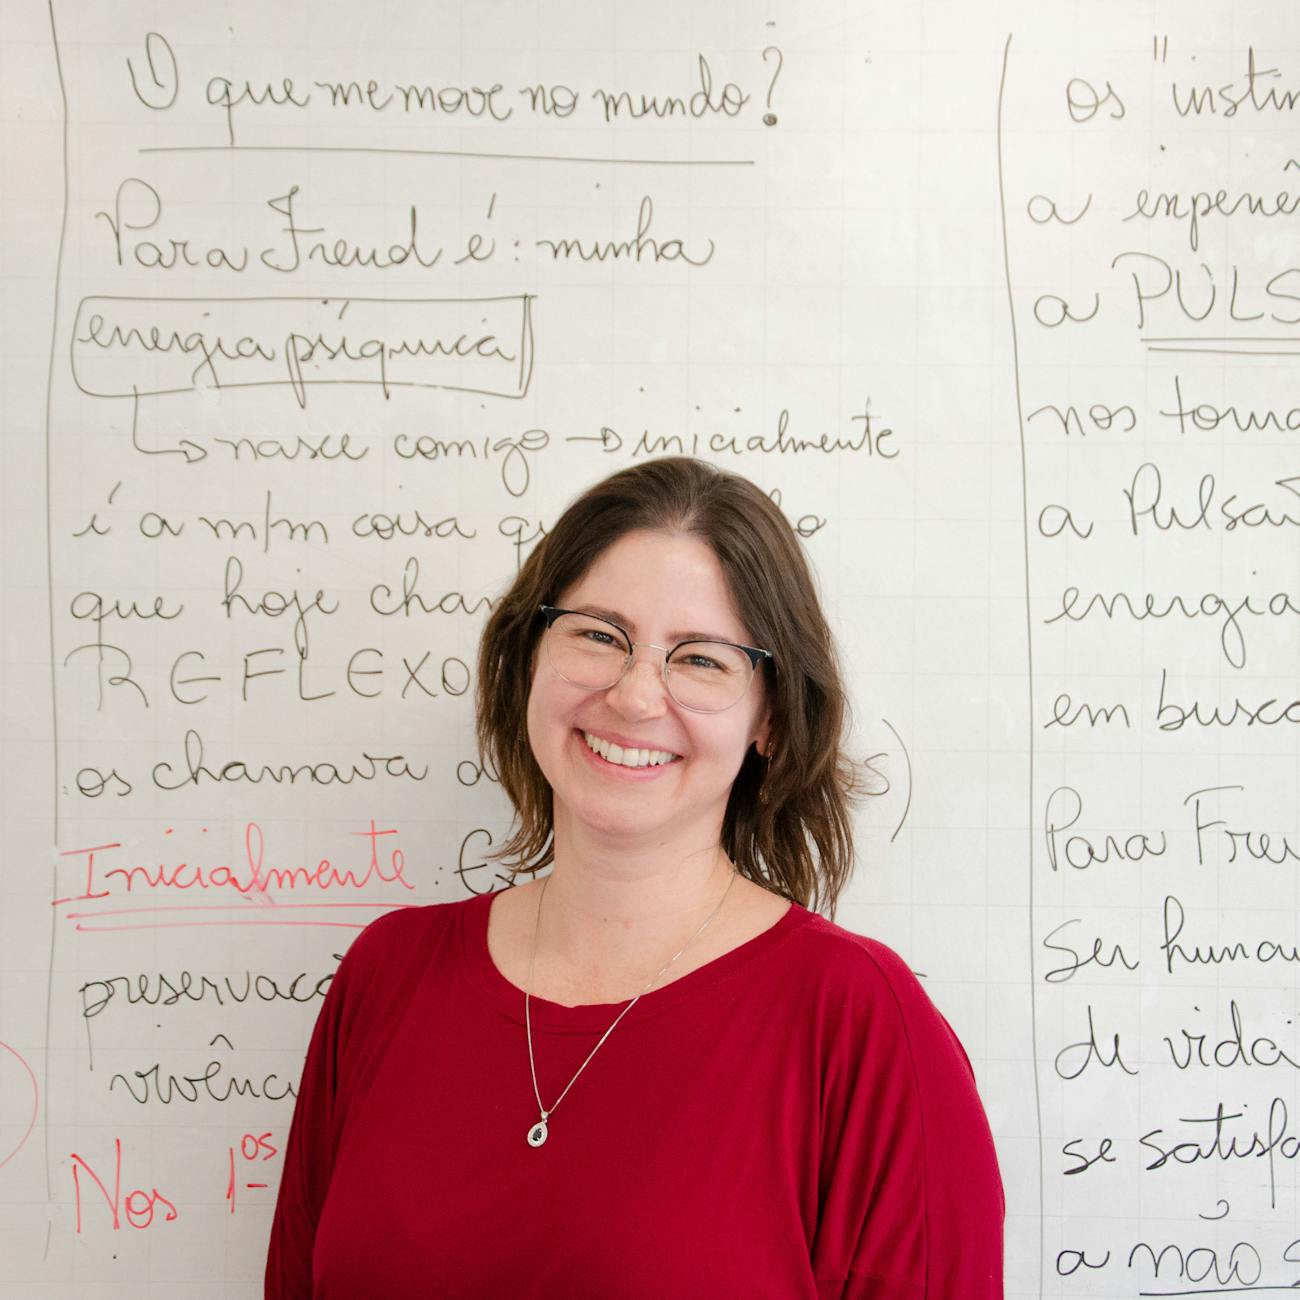 O que me move no mundo?
Para Freud é: minha
energia psíquica
nasce comigo → inicialmente
é a m/m coisa
que hoje
REFLEXO
os chamava
Inicialmente:
vivênci
Nos 1os
os "instin
a experiê
a PULS
nos torna
a Pulsã
energia
em busca
Para Freu
Ser human
de vida
se satisfa
a não